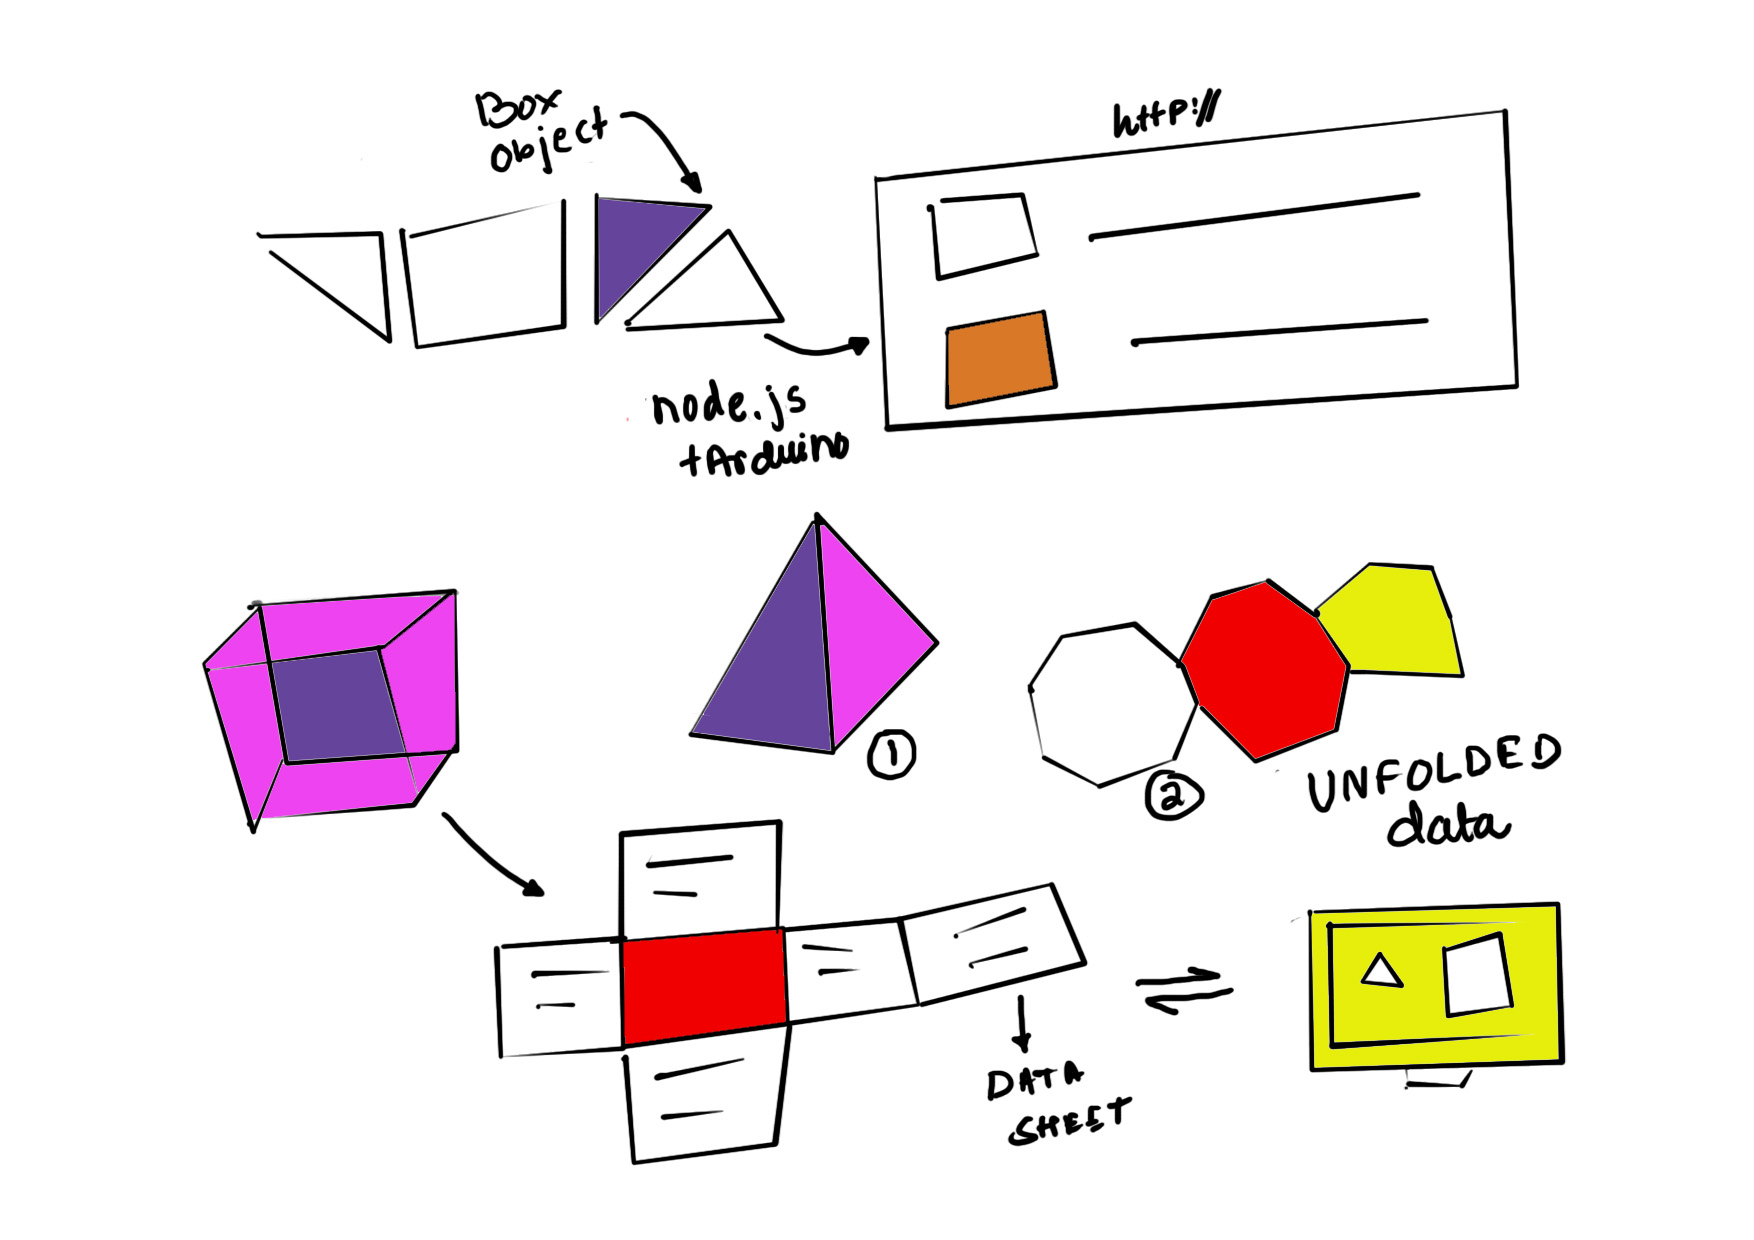 Box
object
http://
node.js
+Arduino
1
2
UNFOLDED
data
DATA
SHEET